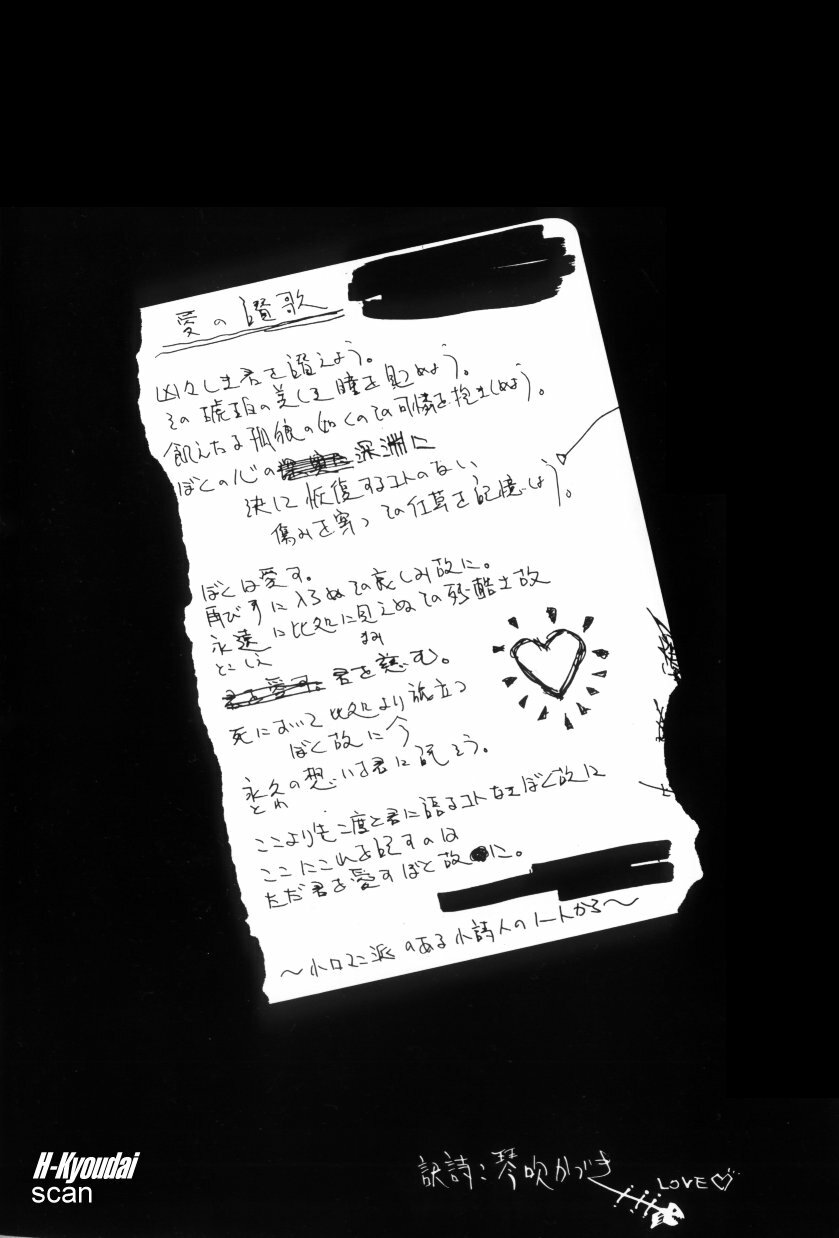 愛の讃歌
凶々しき君を讃えよう。
その琥珀の美しき瞳を見つめよう。
飢えたる孤狼の如くのその可憐を抱きしめよう。
ぼくの心の 深淵に
決して恢復するコトのない
傷みを穿つその仕草を記憶しよう。
ぼくは愛す。
再び手に入らぬその哀しみ故に。
永遠に此処に見えぬその残酷さ故
とこしえ
まみ
君を愛す。君を慈む。
死において此処より旅立つ
ぼく故に今
永久の想いを君に託そう。
とわ
ここよりも二度と君に語るコトなきぼく故に
ここにこれを記すのは
ただ君を愛すぼく故に。
〜小ロマン派のある小詩人のノートから〜
訳詩：琴吹かづき
LOVE♡
H-Kyoudai
scan